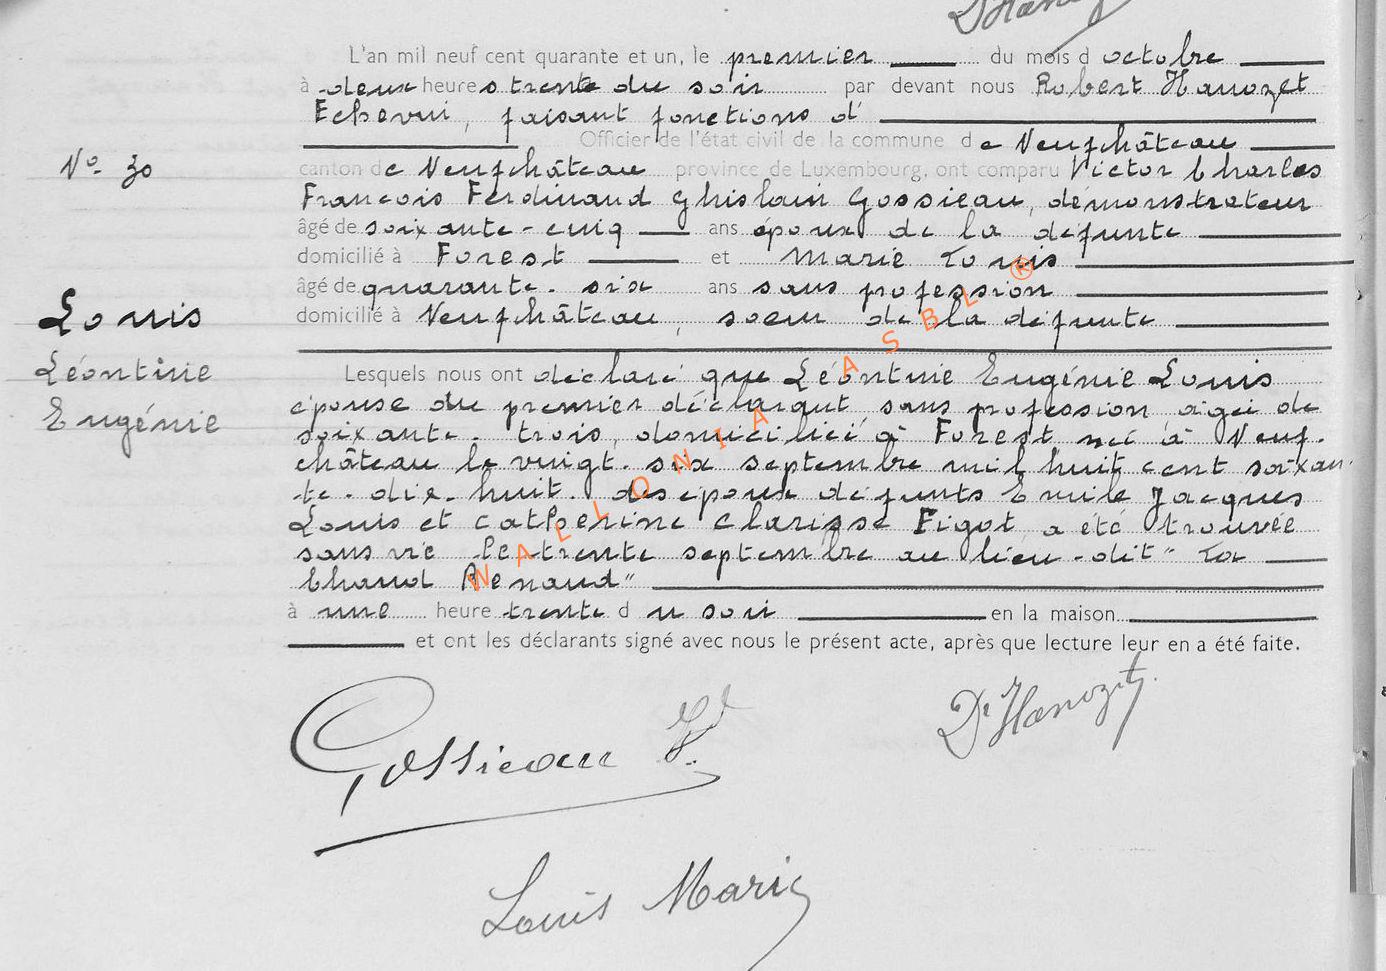 D'Hanozet
L'an mil neuf cent quarante et un, le premier du mois d octobre
à deux heures trente du soir par devant nous Robert Hanozet
Echevin, faisant fonctions d'
Officier de l'état civil de la commune de Neufchâteau
N° 30
canton de Neufchâteau province de Luxembourg, ont comparu Victor Charles
François Ferdinand Ghislain Gossieau, démonstrateur
âgé de soixante-cinq ans époux de la défunte
domicilié à Forest et Marie Louis
âgé de quarante-six ans sans profession
Louis
domicilié à Neufchâteau, soeur de la défunte
Léontine
Lesquels nous ont déclaré que Léontine Eugénie Louis
Eugénie
épouse du premier déclarant, sans profession âgée de
soixante-trois, domiciliée à Forest née à Neuf-
château le vingt-six septembre mil huit cent soixan-
te-dix-huit. des époux défunts Emile Jacques
Louis et Catherine Clarisse Figot, a été trouvée
sans vie le trente septembre au lieu-dit "La
Chaud Renaud"
à une heure trente du soir en la maison
et ont les déclarants signé avec nous le présent acte, après que lecture leur en a été faite.
WALLONIA ASBL ®
Gossieau V.
Dr Hanozet
Louis Marie